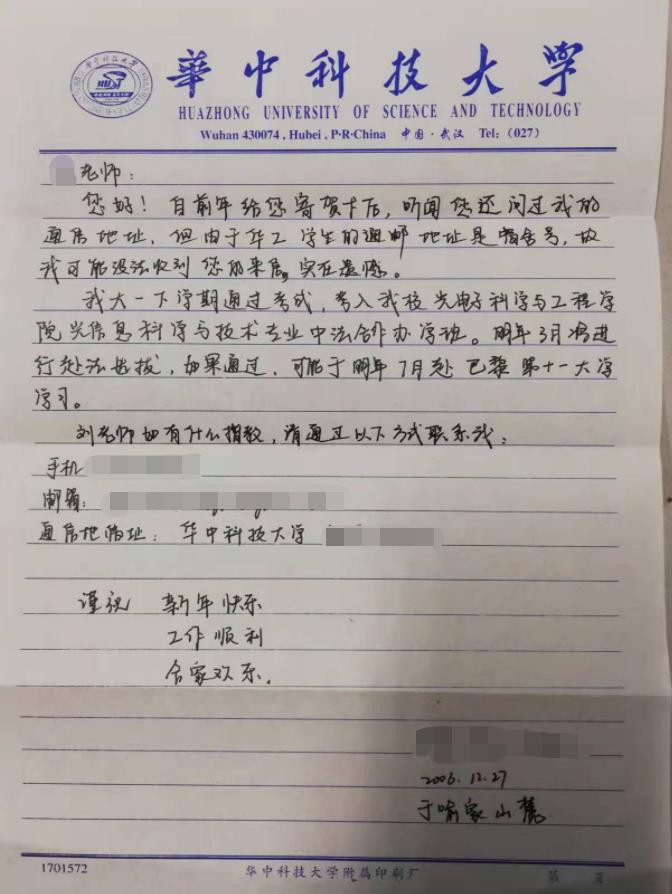 華中科技大学
HUAZHONG UNIVERSITY OF SCIENCE AND TECHNOLOGY
Wuhan 430074, Hubei, P·R·China 中国·武汉 Tel:(027)
HUST
老师：
您好！自前年给您寄贺卡后，听闻您还问过我的
通信地址，但由于华工学生的通邮地址是宿舍号，故
我可能没法收到您的来信，实在遗憾。
我大一下学期通过考试，考入我校光电子科学与工程学
院光信息科学与技术专业中法合作办学班。明年3月将进
行赴法选拔，如果通过，可能于明年7月赴巴黎第十一大学
学习。
刘老师如有什么指教，请通过以下方式联系我：
手机
邮箱：
通信地址：华中科技大学
谨祝 新年快乐
工作顺利
合家欢乐.
2006.12.27
于喻家山麓
1701572 华中科技大学附属印刷厂 第 页